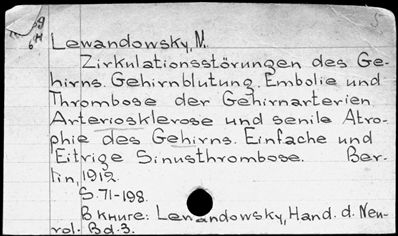 Lewandowsky, M.
Zirkulationsstörungen des Ge-
hirns. Gehirnblutung. Embolie und
Thrombose der Gehirnarterien.
Arteriosklerose und senile Atro-
phie des Gehirns. Einfache und
Eitrige Sinusthrombose. Ber-
lin, 1912.
S. 71-198.
В книге: Lewandowsky, Hand. d. Neu-
rol. Bd. 3.